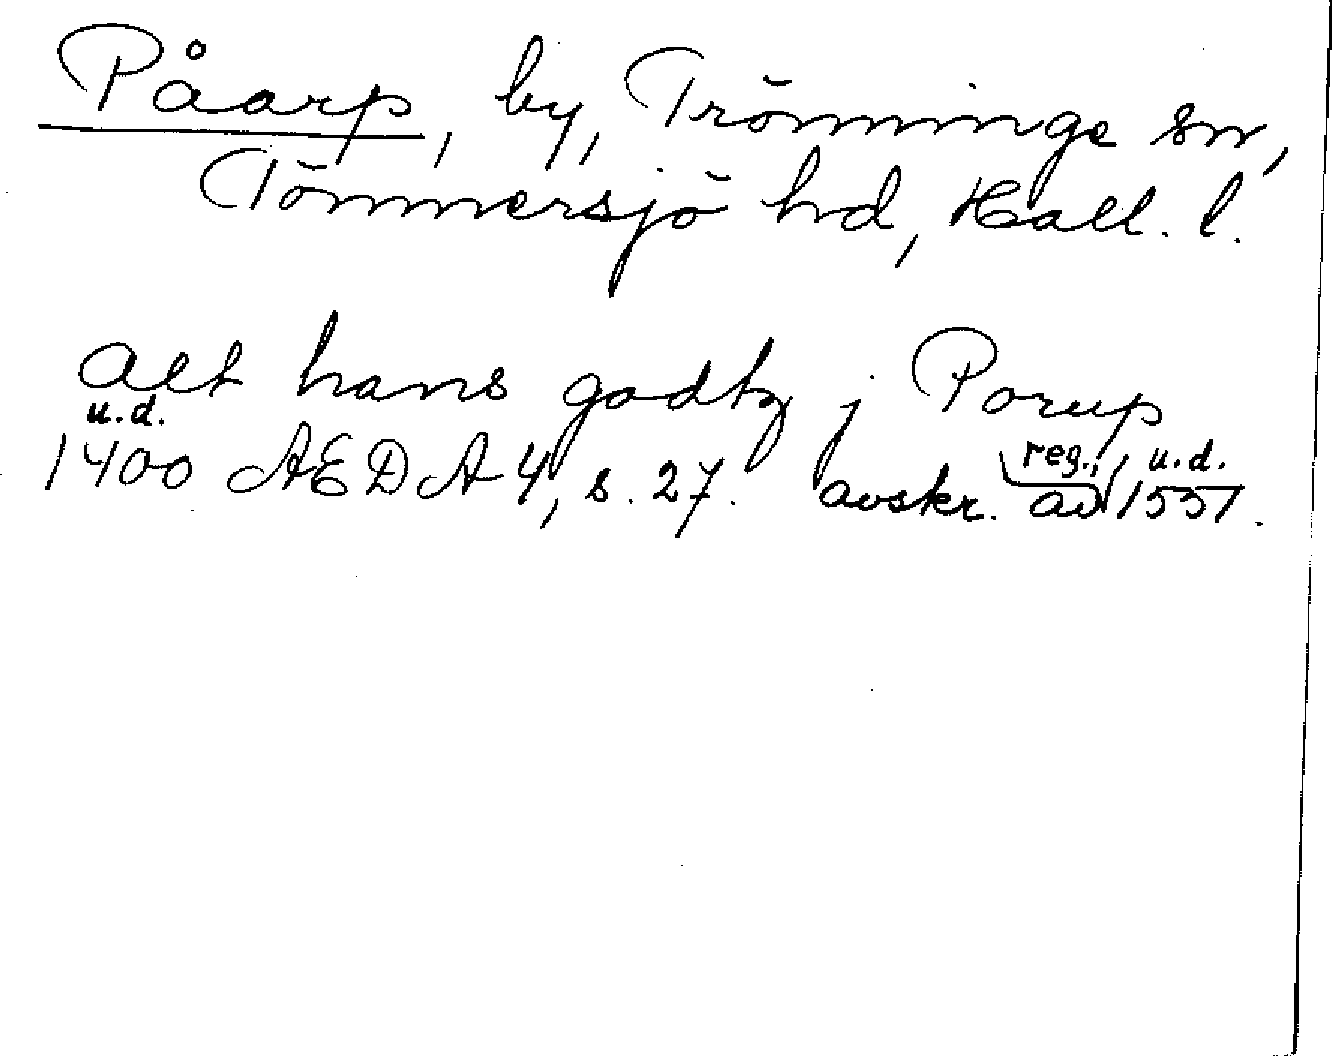 Påarp, by, Trönninge sn,
Tönnersjö hd, Hall. l.
alt hans godtz j Porup
u.d.
1400 AEDA 4, s. 27. avskr. av reg., u.d. 1551.